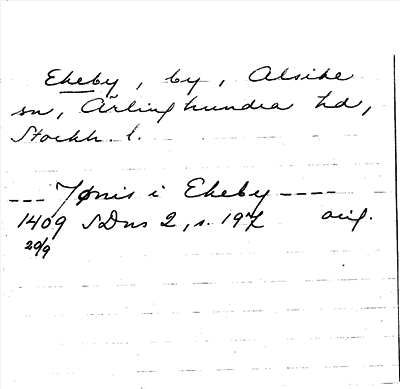 Ekeby, by, Alsike
sn, Ärlinghundra hd,
Stockh. l.
--- Jønis i Ekeby ----
1409 SDns 2, s. 197 orig.
20/9